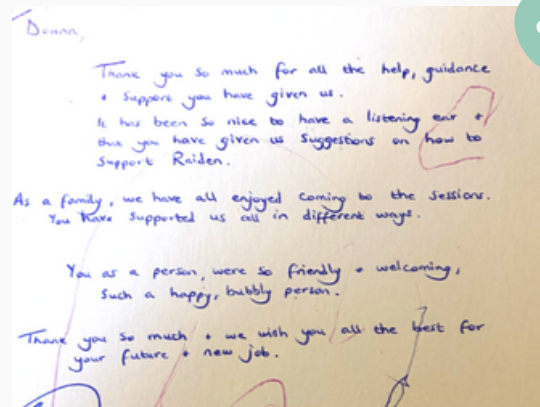 Donna,
Thank you so much for all the help, guidance
+ support you have given us.
It has been so nice to have a listening ear +
that you have given us suggestions on how to
support Raiden.
As a family, we have all enjoyed coming to the sessions.
You have supported us all in different ways.
You as a person, were so friendly + welcoming,
such a happy, bubbly person.
Thank you so much + we wish you all the best for
your future + new job.